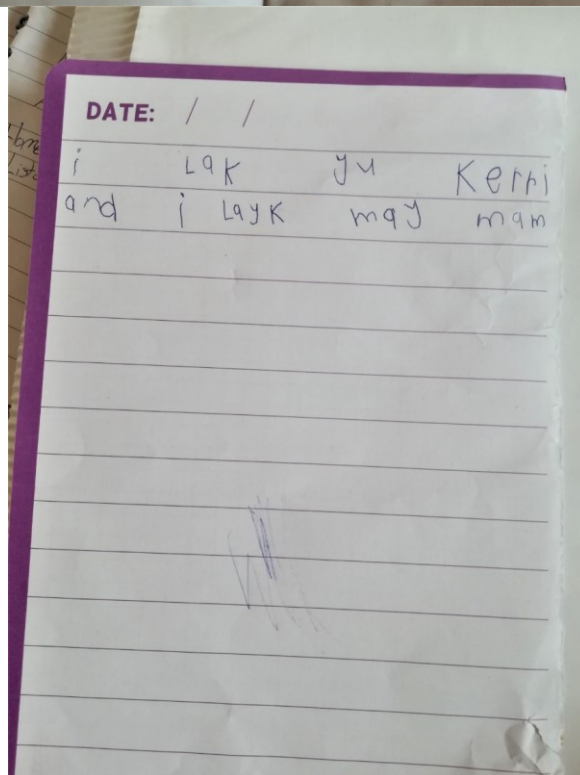 DATE: / /
i Lak yu Kerri
and i Layk may mam